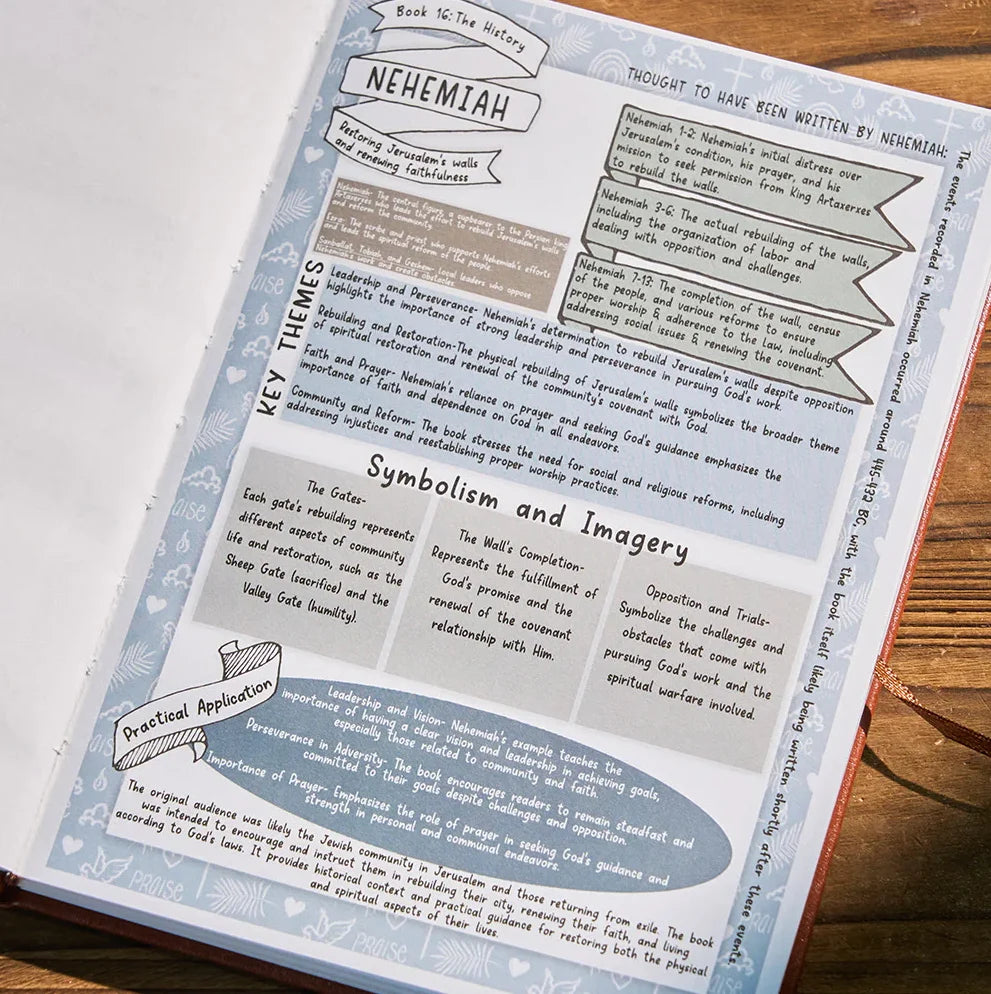 Book 16: The History
NEHEMIAH
Restoring Jerusalem's walls
and renewing faithfulness
THOUGHT TO HAVE BEEN WRITTEN BY NEHEMIAH:
The events recorded in Nehemiah occurred around 445-432 BC, with the book itself likely being written shortly after these events.
Nehemiah 1-2: Nehemiah's initial distress over
Jerusalem's condition, his prayer, and his
mission to seek permission from King Artaxerxes
to rebuild the walls.
Nehemiah 3-6: The actual rebuilding of the walls,
including the organization of labor and
dealing with opposition and challenges.
Nehemiah 7-13: The completion of the wall, census
of the people, and various reforms to ensure
proper worship & adherence to the Law, including
addressing social issues & renewing the covenant.
Nehemiah- The central figure, a cupbearer to the Persian king
Artaxerxes who leads the effort to rebuild Jerusalem's walls
and reform the community.
Ezra- The scribe and priest who supports Nehemiah's efforts
and leads the spiritual reform of the people.
Sanballat, Tobiah, and Geshem- local leaders who oppose
Nehemiah's work and create obstacles.
KEY THEMES
Leadership and Perseverance- Nehemiah's determination to rebuild Jerusalem's walls despite opposition
highlights the importance of strong leadership and perseverance in pursuing God's work.
Rebuilding and Restoration-The physical rebuilding of Jerusalem's walls symbolizes the broader theme
of spiritual restoration and renewal of the community's covenant with God.
Faith and Prayer- Nehemiah's reliance on prayer and seeking God's guidance emphasizes the
importance of faith and dependence on God in all endeavors.
Community and Reform- The book stresses the need for social and religious reforms, including
addressing injustices and reestablishing proper worship practices.
Symbolism and Imagery
The Gates-
Each gate's rebuilding represents
different aspects of community
life and restoration, such as the
Sheep Gate (sacrifice) and the
Valley Gate (humility).
The Wall's Completion-
Represents the fulfillment of
God's promise and the
renewal of the covenant
relationship with Him.
Opposition and Trials-
Symbolize the challenges and
obstacles that come with
pursuing God's work and the
spiritual warfare involved.
Practical Application
Leadership and Vision- Nehemiah's example teaches the
importance of having a clear vision and leadership in achieving goals,
especially those related to community and faith.
Perseverance in Adversity- The book encourages readers to remain steadfast and
committed to their goals despite challenges and opposition.
Importance of Prayer- Emphasizes the role of prayer in seeking God's guidance and
strength in personal and communal endeavors.
The original audience was likely the Jewish community in Jerusalem and those returning from exile. The book
was intended to encourage and instruct them in rebuilding their city, renewing their faith, and living
according to God's laws. It provides historical context and practical guidance for restoring both the physical
and spiritual aspects of their lives.
PRAISE
PRAISE